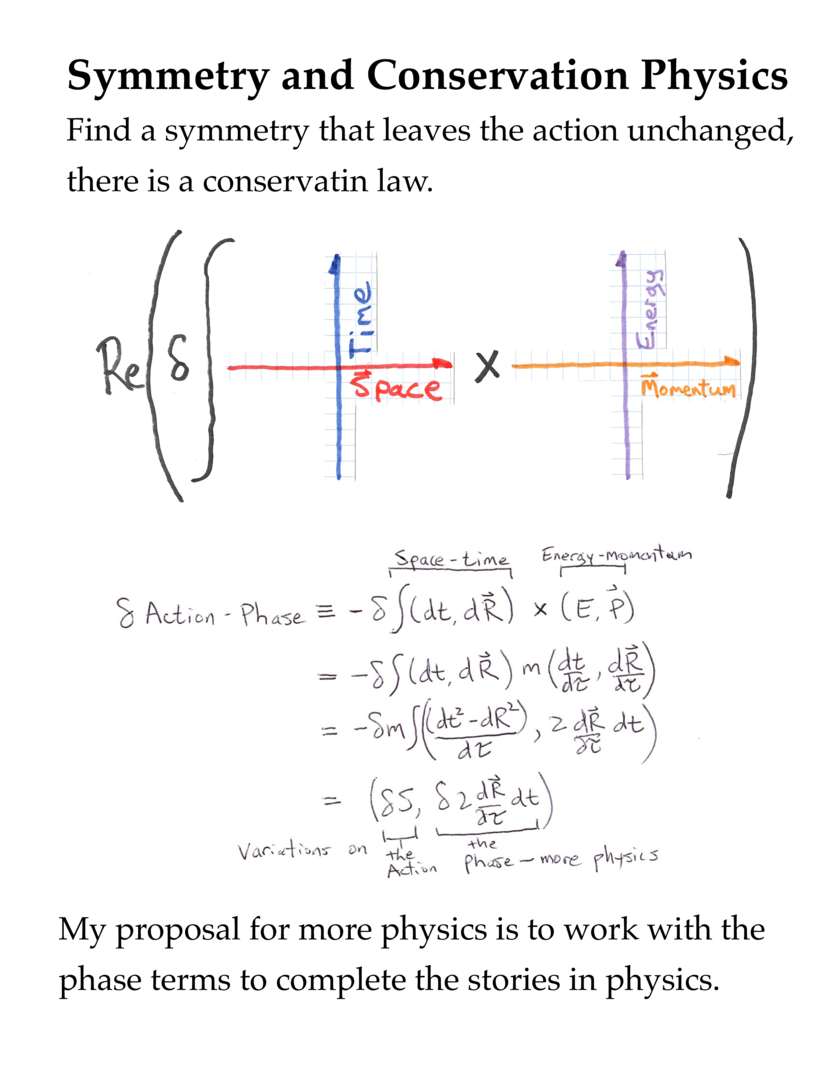 Symmetry and Conservation Physics
Find a symmetry that leaves the action unchanged,
there is a conservatin law.
Re(δ∫ Time Space⃗ × Energy Momentum⃗)
Space-time Energy-momentum
δ Action-Phase ≡ -δ∫(dt, dR⃗) × (E, P⃗)
= -δ∫(dt, dR⃗) m(dt/dτ, dR⃗/dτ)
= -δm∫((dt² - dR²)/dτ, 2 dR⃗/dτ dt)
= (δS, δ2 dR⃗/dτ dt)
Variations on the Action the Phase – more physics
My proposal for more physics is to work with the
phase terms to complete the stories in physics.